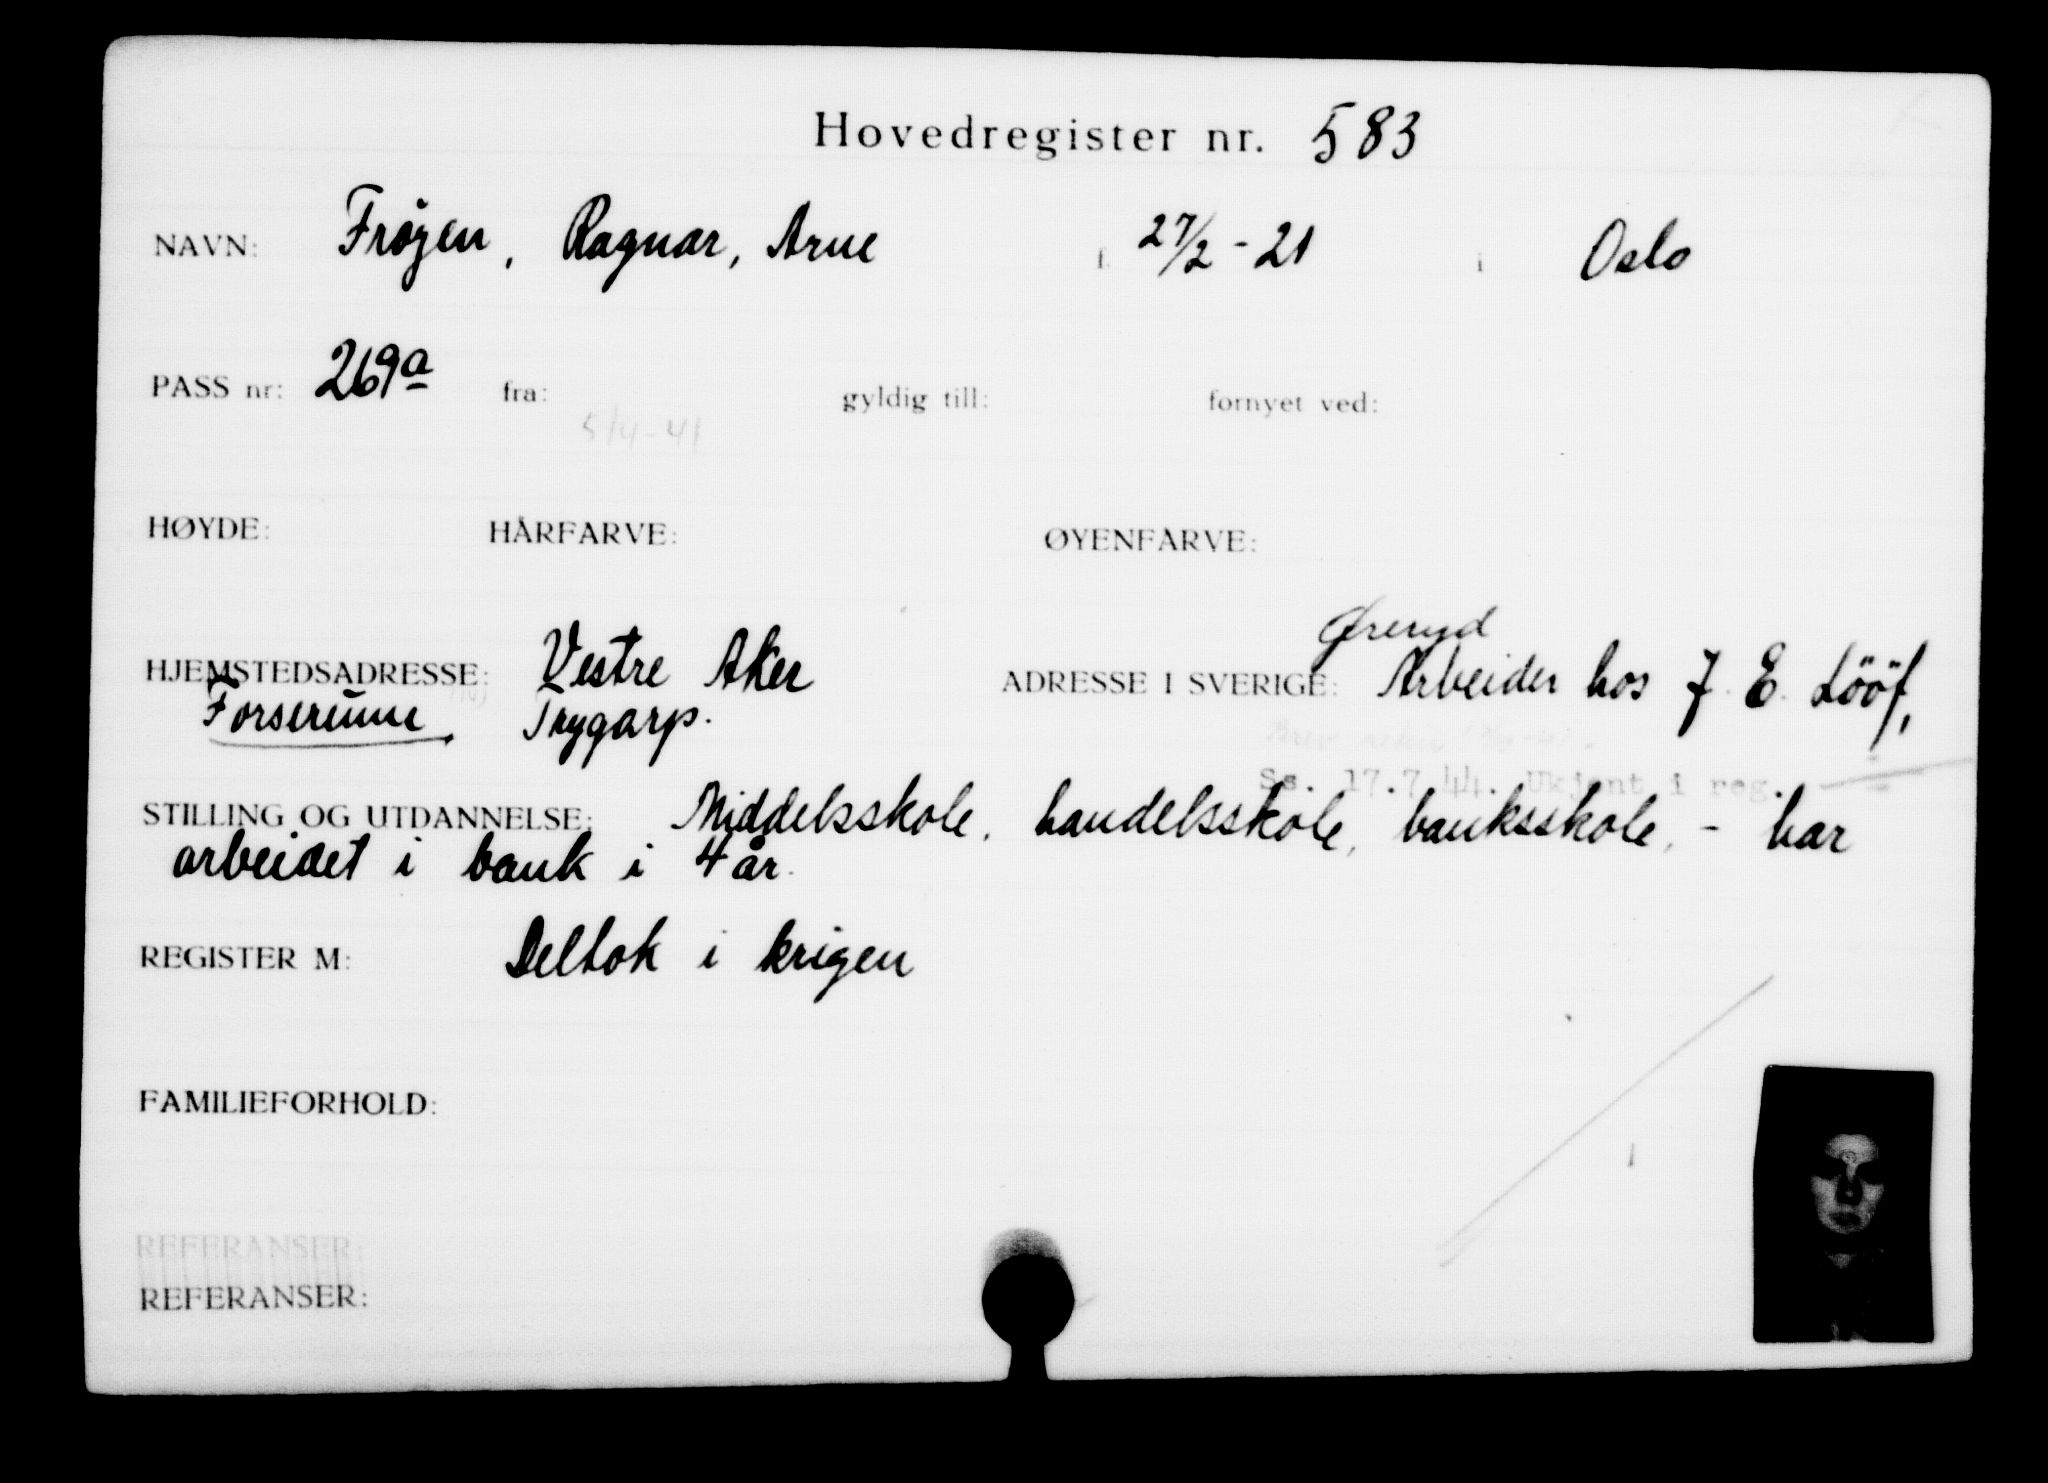 Hovedregister nr. 583
NAVN: Frøyen, Ragnar, Arne f. 27/2-21 i Oslo
PASS nr: 269a fra: gyldig till: fornyet ved:
5/4-41
HØYDE: HÅRFARVE: ØYENFARVE:
Øreryd
HJEMSTEDSADRESSE: Vestre Aker ADRESSE I SVERIGE: Arbeider hos J. E. Lööf,
Forserum. Trygarp.
Ss. 17.7.44. Ukjent i reg.
STILLING OG UTDANNELSE: Middelsskole, handelsskole, banksskole, - har
arbeidet i bank i 4 år.
REGISTER M: Deltok i krigen
FAMILIEFORHOLD:
REFERANSER:
REFERANSER: